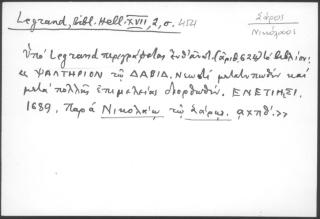 Legrand, Bibl. Hell. XVII, 2, σ. 454
Σάρος
Νικόλαος
Ὑπό Legrand περιγράφεται ἐνθ' ἀνωτ. (ἀριθ. 626) τό βιβλίον:
« ΨΑΛΤΗΡΙΟΝ τῷ ΔΑΒΙΔ. Νεωστί μετατυπωθέν καί
μετά πολλῆς ἐπιμελείας διορθωθέν. ΕΝΕΤΙΗΣΙ.
1689. Παρά Νικολάῳ τῷ Σάρῳ. αχπθ'. »